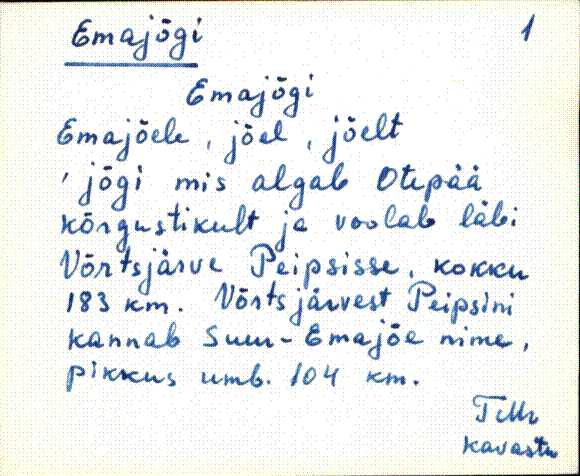 Emajõgi 1
Emajõgi
Emajõele, jõel, jõelt
' jõgi mis algab Otepää
kõrgustikult ja voolab läbi
Võrtsjärve Peipsisse, kokku
183 km. Võrtsjärvest Peipsini
kannab Suur-Emajõe nime,
pikkus umb. 104 km.
Kavastu